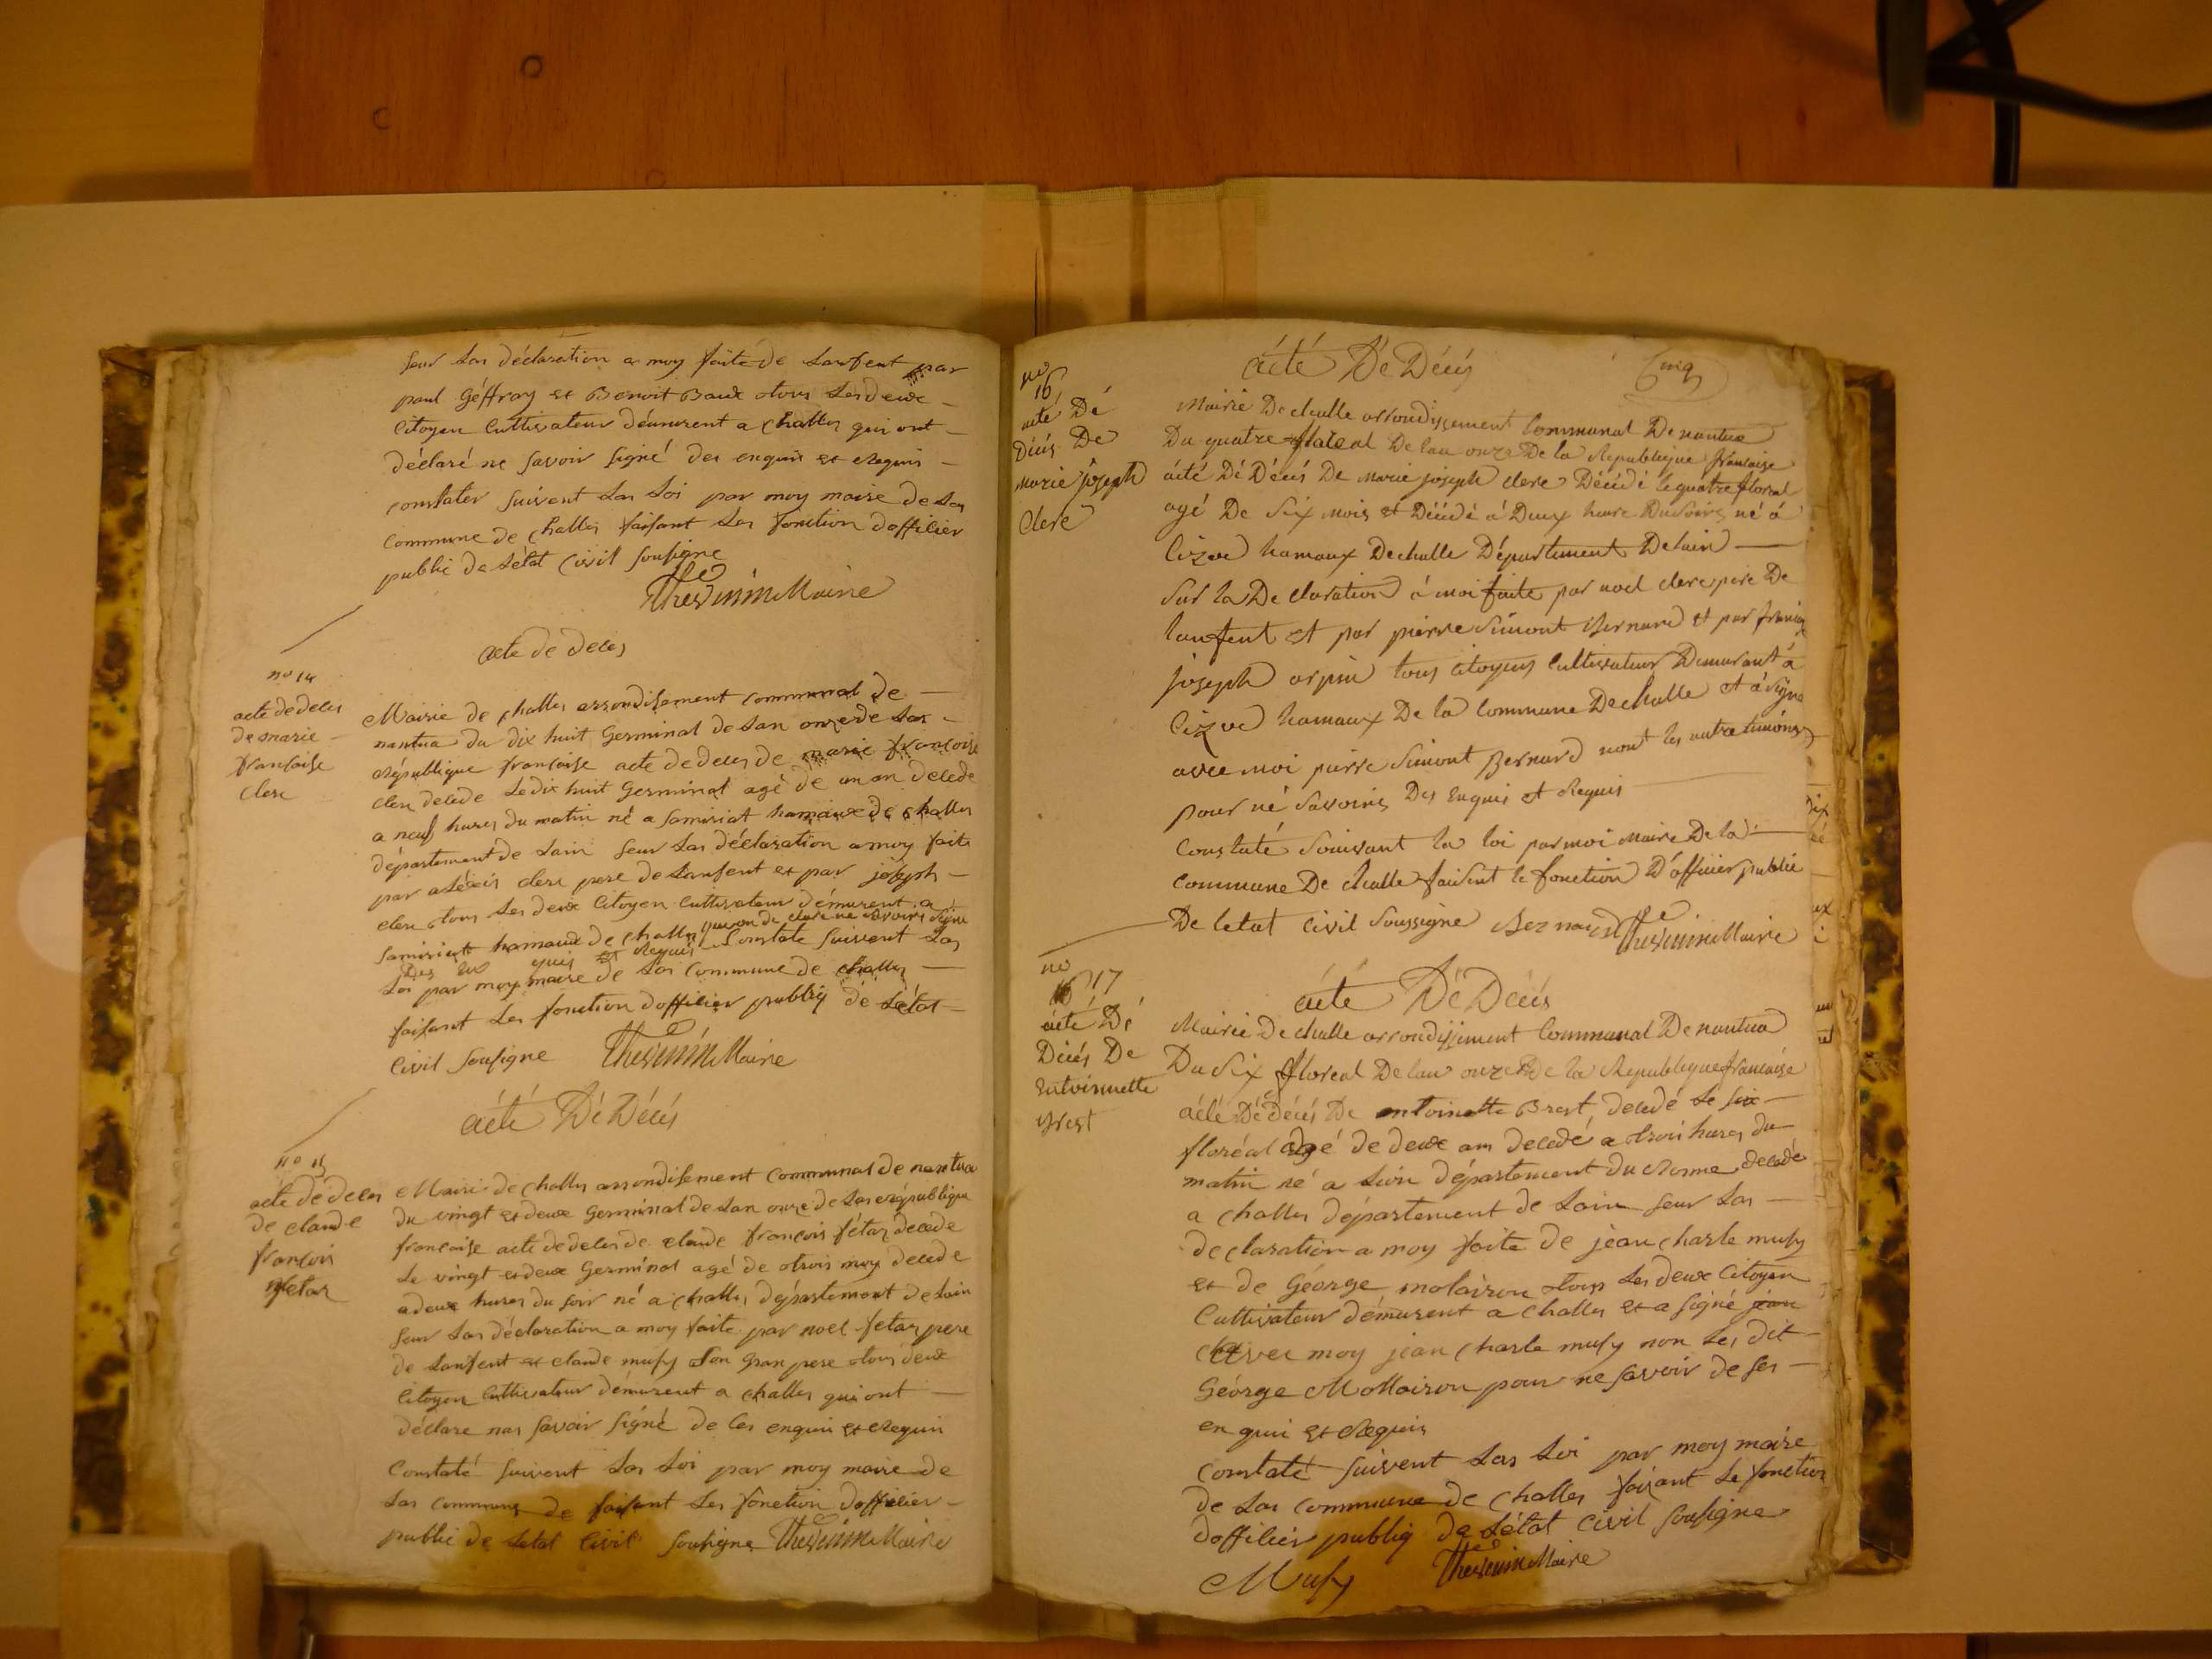 seur las déclaration a moy faite de lanfent par
paul géffray et Benoit Baux tous les deux
Citoyen Cultivateur démurent a challes qui ont
déclaré ne savoir signé des enquis et Requis
constater suivent las loi par moy maire de las
commune de challes faisant les fonction dofficier
public de létat Civil sousigne
Thevenin Maire
acte de deces
no 14
acte de deces
de marie
francoise
clerc
Mairie de challes arrondisement communal de
nantua du dix huit Germinal de lan onze de las
République francoise acte de deces de marie francoise
clerc decede le dix huit Germinal agé de un an decede
a neuf hures du matin né a samiriat hamaux de challes
département de lain seur las déclaration a moy faite
par aléxis clerc pere de lanfent et par joseph
clerc tous les deux Citoyen Cultivateur démurent a
samiriat hamaux de challes qui on de clare ne savoire signe
des en quis et Requis Constate suivent las
loi par moy maire de las commune de challes
faisant les fonction dofficier publiq de létat
Civil sousigne Thevenin Maire
àcté Dé Décés
no 15
acte de deces
de claude
francois
fetas
Mairi de challes arrondisement communal de nantua
du vingt et deux Germinal de lan onze de las république
francoise acte de deces de claude francois fétas decede
le vingt et deux Germinal agé de trois moy decede
a deux hures du soir né a challes département de lain
seur las déclaration a moy faite par noel fetas pere
de lanfent et claude mussy son gran pere tous deux
Citoyen Cultivateur démurent a challes qui ont
déclare nas savoir signé de ces enquis et Requis
Constaté suivent las loi par moy maire de
las commune de faisant les fonction dofficier
public de letat Civil sousigne Thevenin Maire
àcté De Décés
Cinq
no
16
acté Dé
Décés De
marie joseph
Clerc
Mairie De challe arrondissement Communal De nantua
Du quatre floreal De lan onze De la Republique francaise
àcté Dé Décés De marie joseph clerc Décédé le quatre floreal
agé De Six mois et Décédé à Deux heure Du Soire né à
hamaux De challe Département De lain
Sur la De claration à moi faite par noel clerc pere De
lanfent et par pierre Simont Bernard et par francois
joseph arpin tous citoyens Cultivateur Demurant à
hamaux De la Commune De challe et à Signe
avec moi pierre Simont Bernard nont les autre timoins
pour né Savoire Des Enquis et Requis
Constaté Suivant la loi par moi Maire De la
Commune De challe faisent le fonction D'officier public
De letat Civil Soussigne Bernard Thevenin Maire
no
17
àcté Dé
Décés De
entoinette
Brest
àcté Dé Décés
Mairie De challe arrondissement Communal De nantua
Du Six floreal De lan onze De la Republique francaise
àcté Dé Décés De antoinette Brest decedé le six
floréal agé de deux an decedé a trois hures du
matin né a lion département du Rosne decedé
a challes département de lain seur las
declaration a moy faite de jean charle mussy
et de Géorge molairon tous les deux Citoyen
Cultivateur démurent a challes et a signé jean
avec moy jean charle mussy non les dit
Géorge Mollairon pour ne savoir de ses
en quis et Requis
Constaté suivent las loi par moy maire
de las commune de challes faisant le fonction
dofficier publiq de létat Civil sousigne
Mussy Thevenin Maire